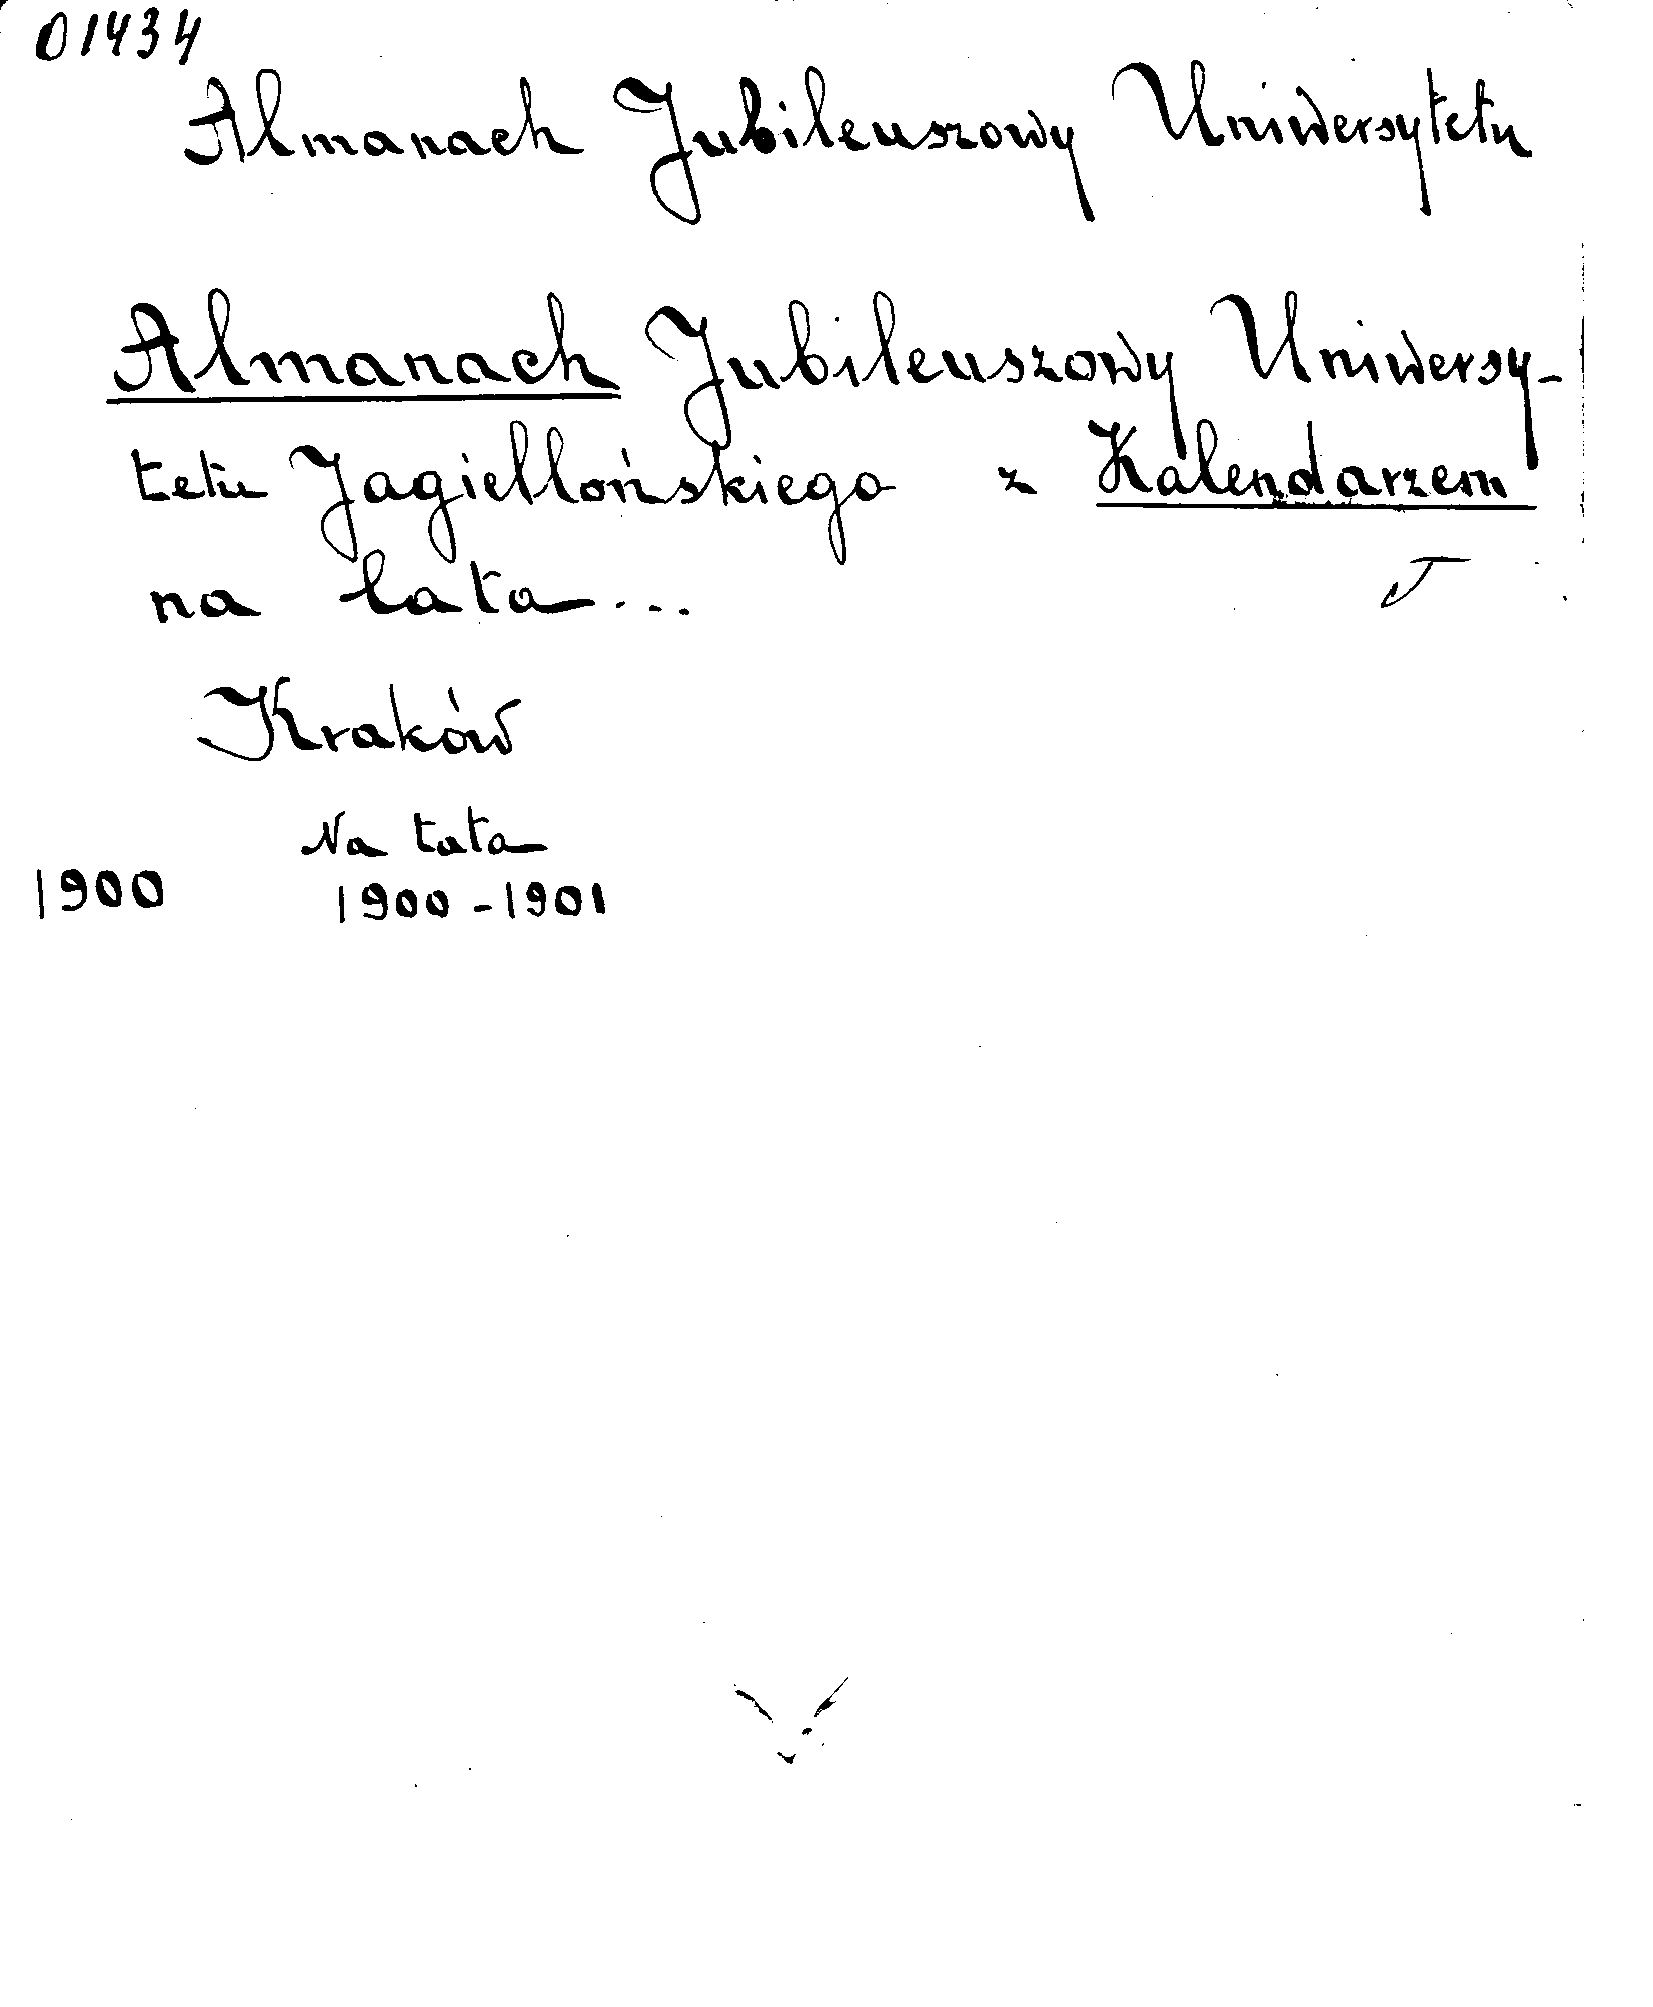 01434
Almanach Jubileuszowy Uniwersytetu
Almanach Jubileuszowy Uniwersy-
tetu Jagiellońskiego z Kalendarzem
na lata...
Kraków
Na lata
1900 1900-1901